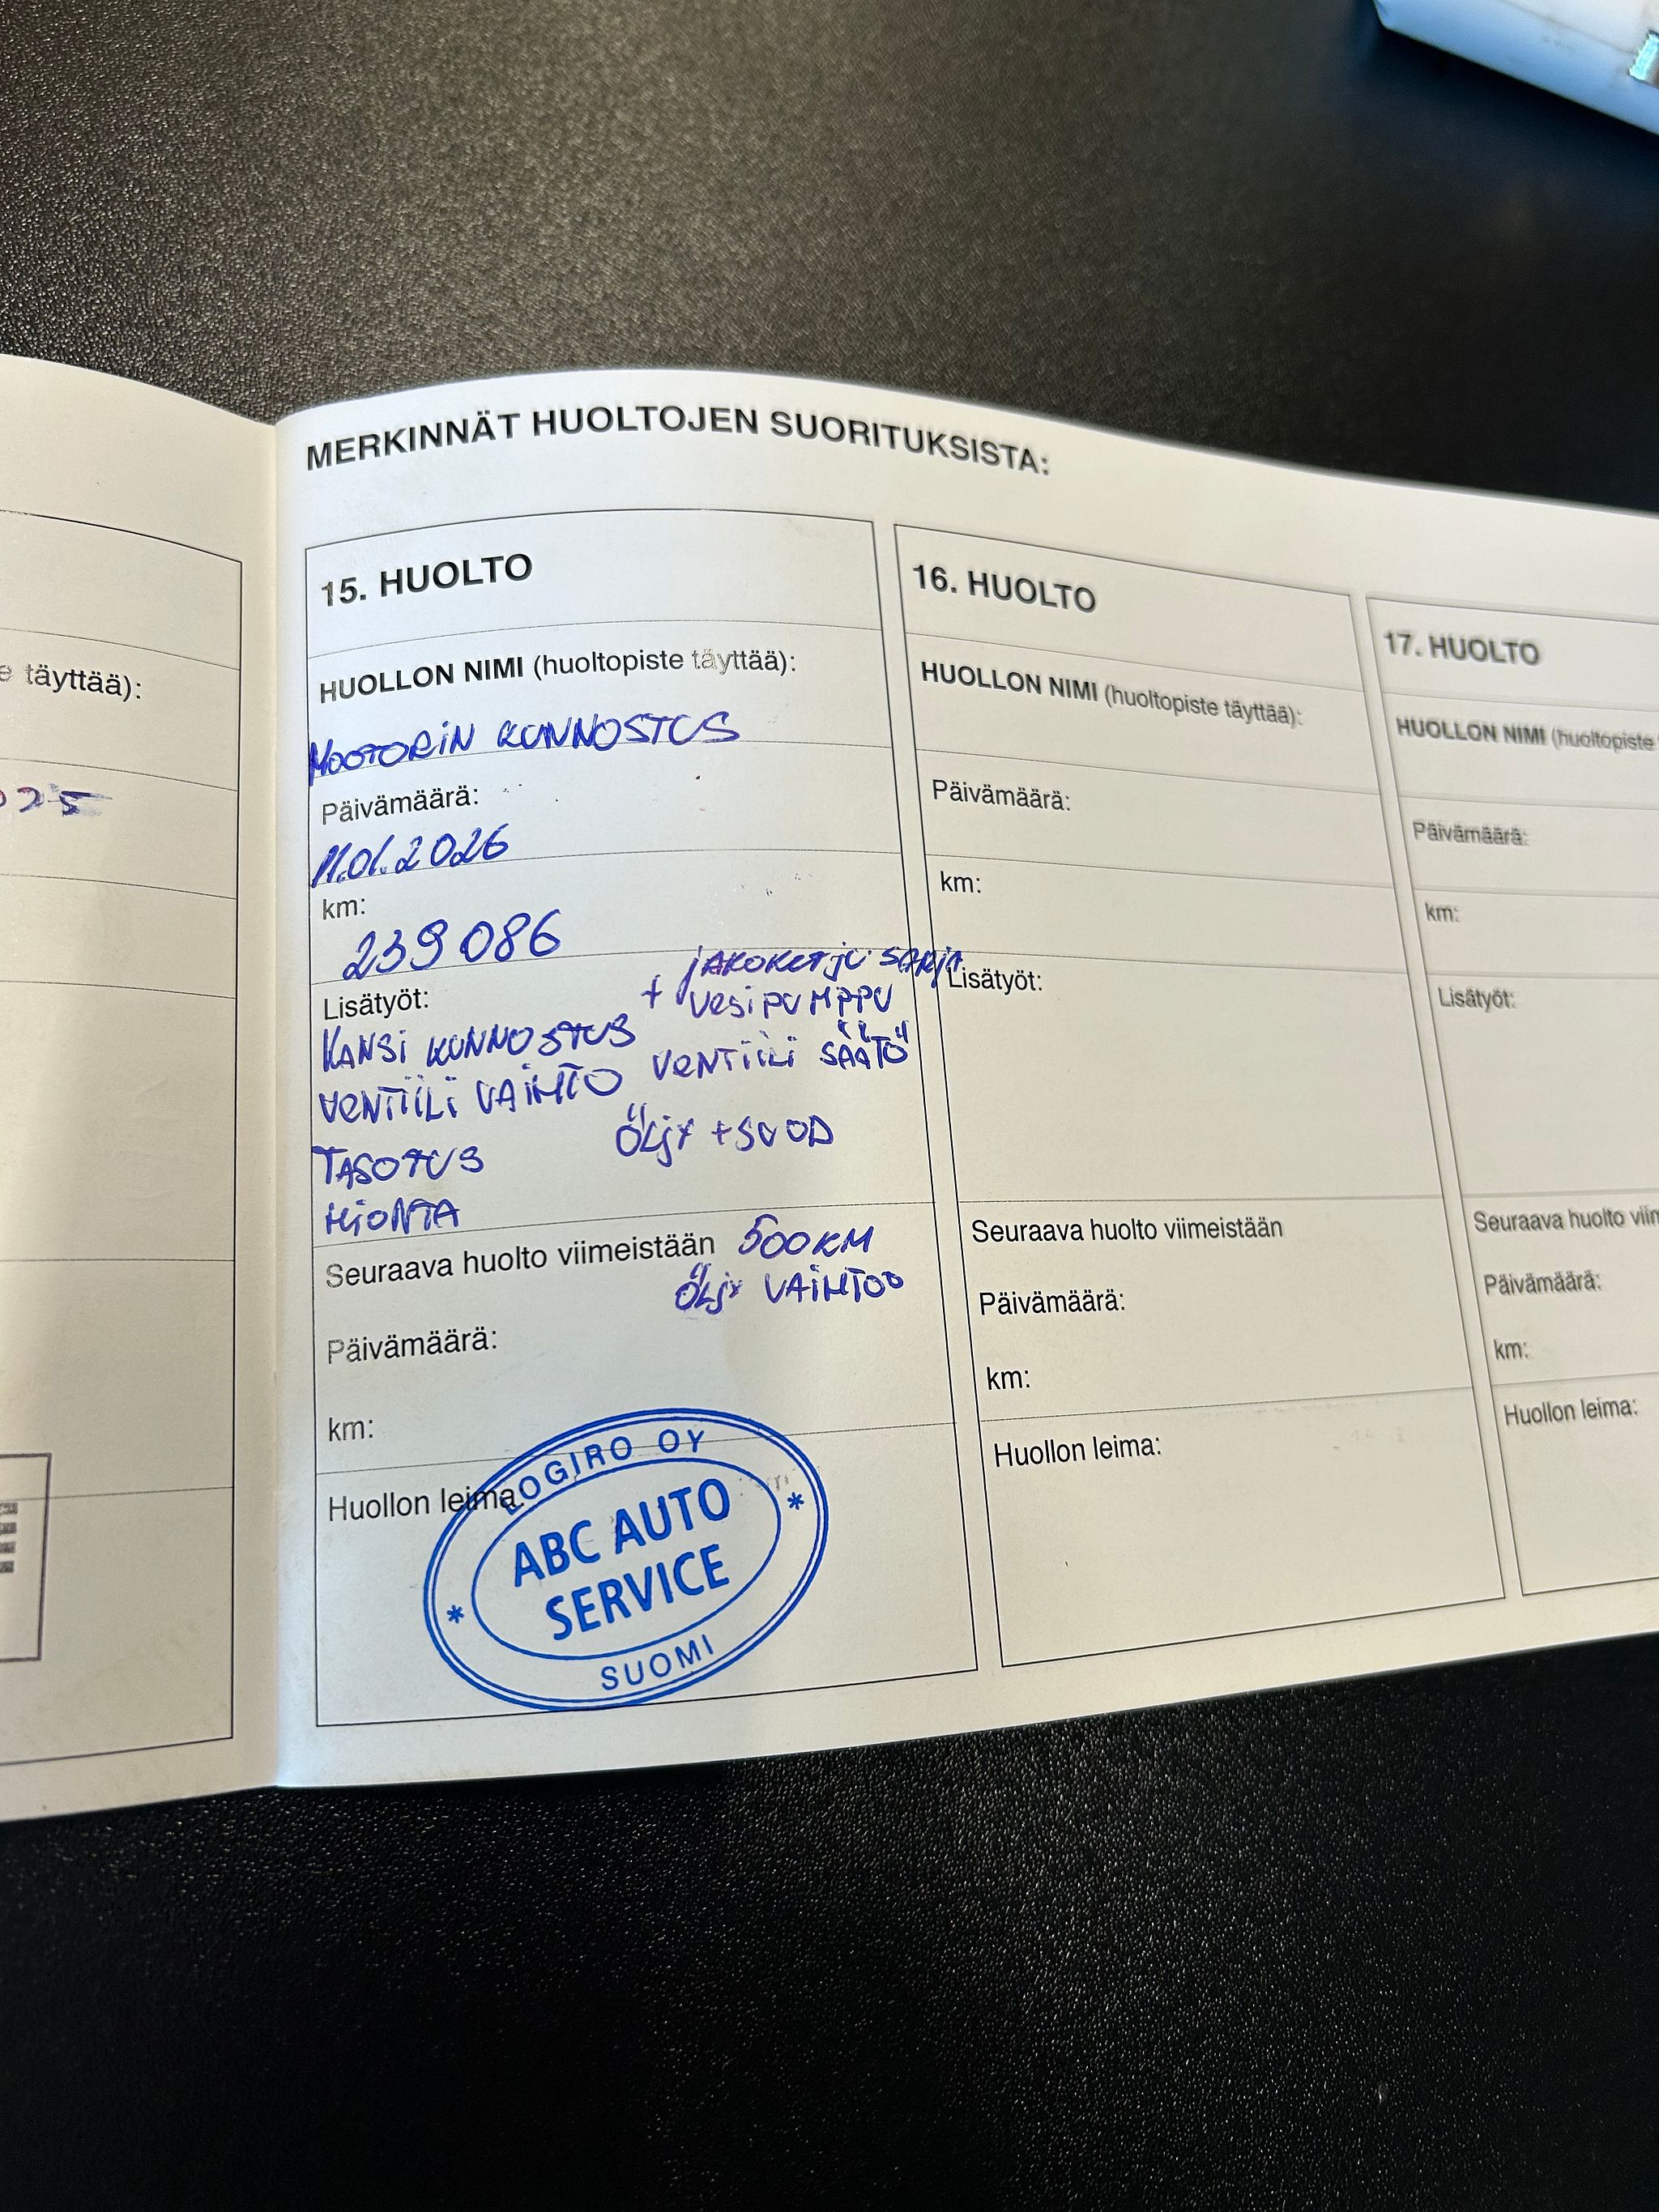 MERKINNÄT HUOLTOJEN SUORITUKSISTA:
e täyttää):
025
15. HUOLTO
HUOLLON NIMI (huoltopiste täyttää):
MOOTORIN KUNNOSTUS
Päivämäärä:
11.01.2026
km:
239 086
Lisätyöt:
+ JAKOKETJU SARJA
VESIPUMPPU
KANSI KUNNOSTUS
VENTIILI VAIHTO VENTIILI SÄÄTÖ
TASOTUS ÖLJY + SUOD
HIONTA
Seuraava huolto viimeistään 500KM
ÖLJY VAIHTOO
Päivämäärä:
km:
Huollon leima:
LOGIRO OY
ABC AUTO
SERVICE
SUOMI
16. HUOLTO
HUOLLON NIMI (huoltopiste täyttää):
Päivämäärä:
km:
Lisätyöt:
Seuraava huolto viimeistään
Päivämäärä:
km:
Huollon leima:
17. HUOLTO
HUOLLON NIMI (huoltopiste
Päivämäärä:
km:
Lisätyöt:
Seuraava huolto viim
Päivämäärä:
km:
Huollon leima: